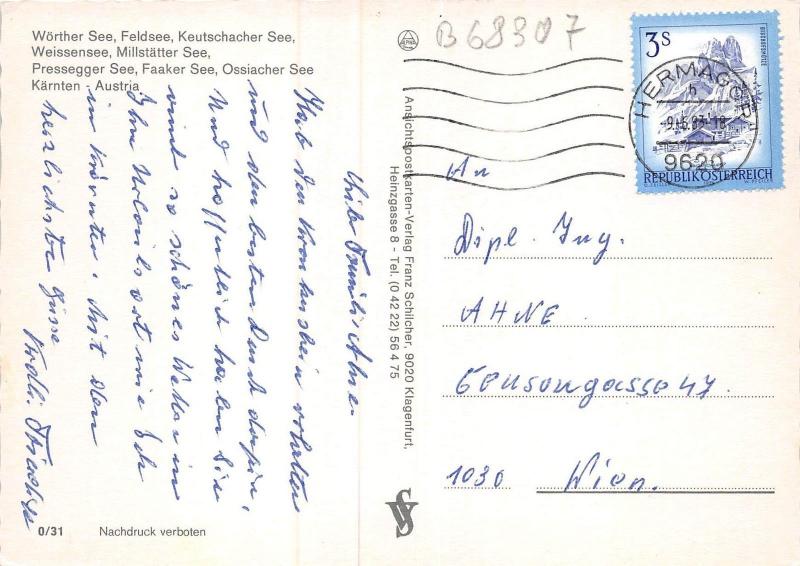 Wörther See, Feldsee, Keutschacher See,
Weissensee, Millstätter See,
Pressegger See, Faaker See, Ossiacher See
Kärnten - Austria
B 68307
3S
REPUBLIK ÖSTERREICH
HERMAGOR
9620
Ansichtspostkarten-Verlag Franz Schilcher, 9020 Klagenfurt,
Heinzgasse 8 - Tel. (0 42 22) 56 4 75
Familie Ahne
Hab den Krankenschein erhalten
und den besten Dank dafür,
Und hoffentlich haben Sie
so schönes Wetter in
Ihrn Urlaubsort wie Ich
in Kärnten. Mit den
herzlichsten Grüsse
An
Dipl. Ing.
AHNE
Geusaugasse 47.
1030 Wien.
0/31 Nachdruck verboten